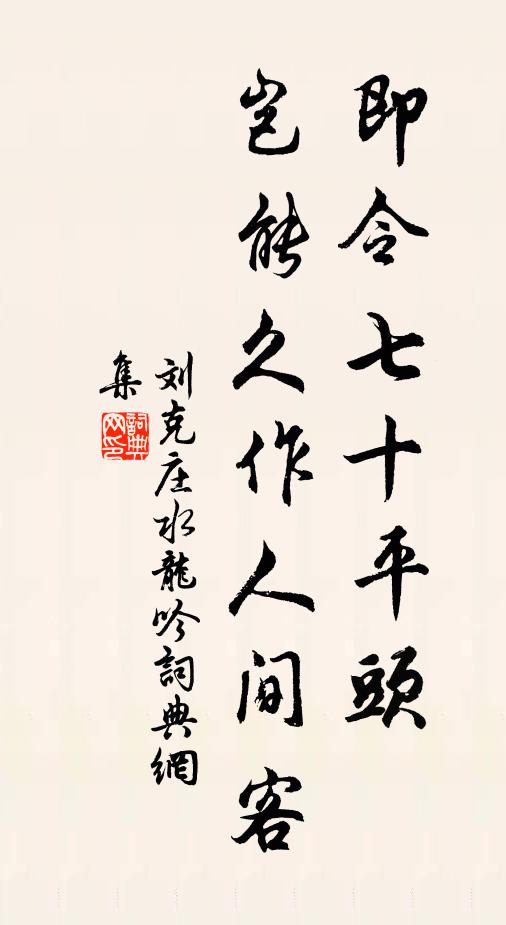 即令七十平頭
岂能久作人间客
刘克庄水龍吟詞典網
集
詞典网印